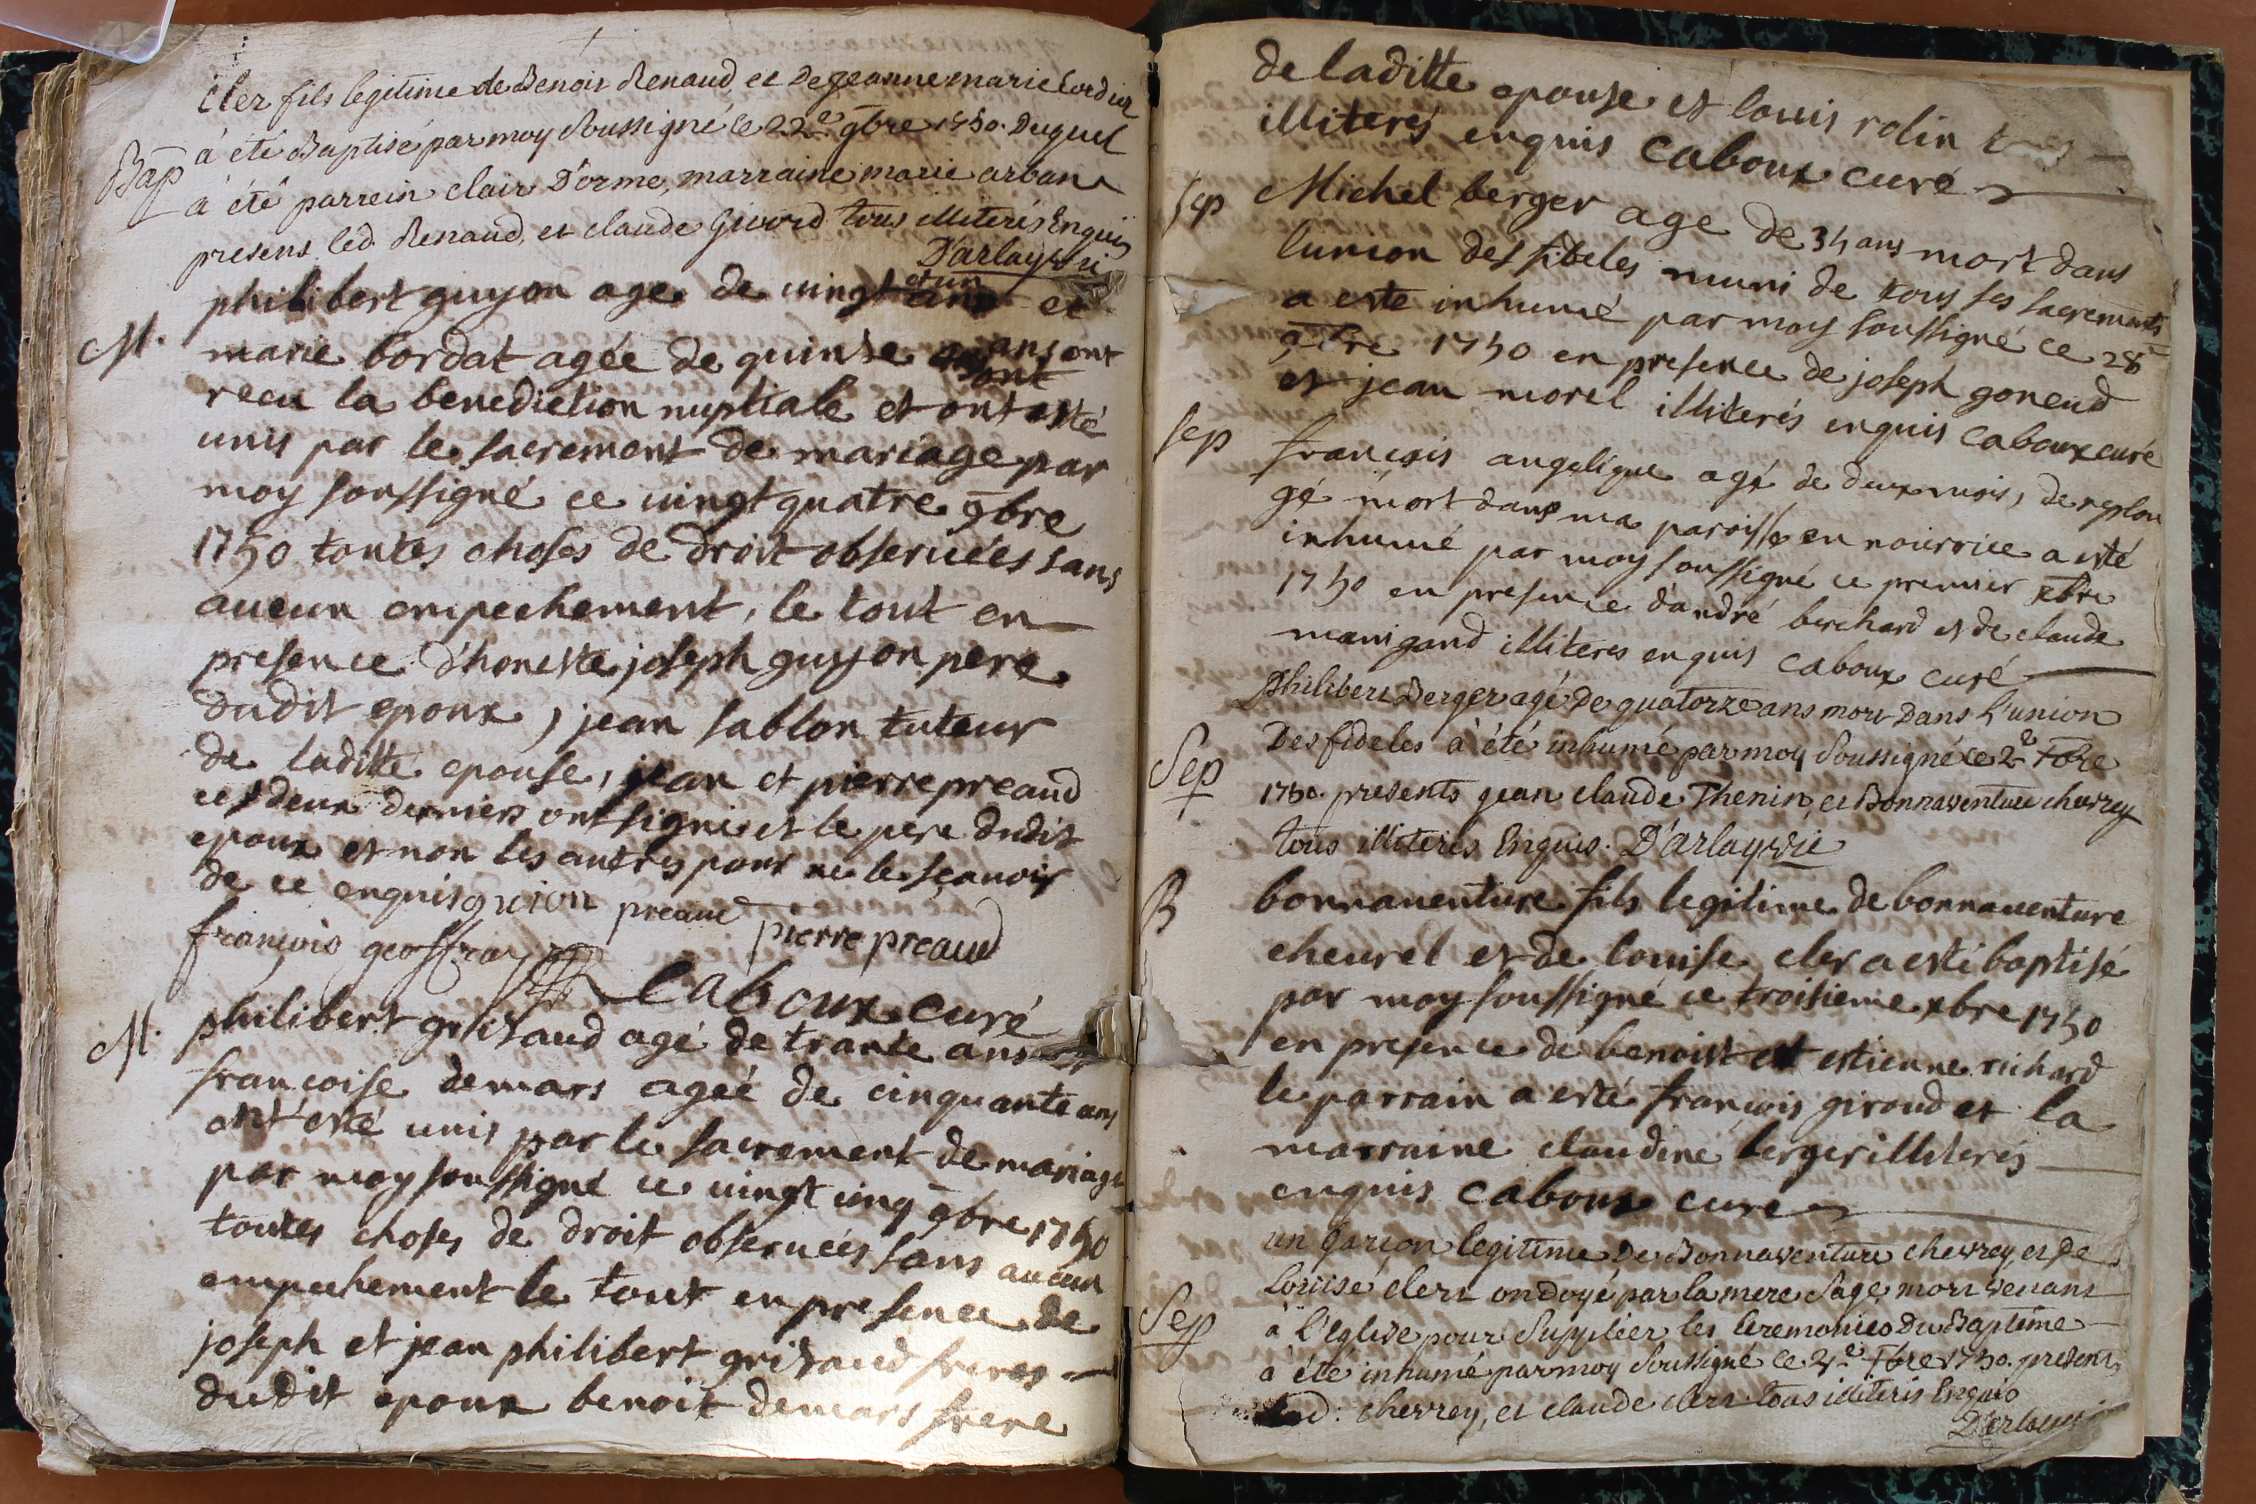 cler fils legitime de Benois Renaud et de jeanne marie Cordier
Bap à été Baptisé par moy soussigné le 22e 9bre 1750. duquel
à été parrein clair D'orme, marraine marie arban
presens led. Renaud, et claude Givord tous illiterés Enquis
D'arlay vic
et un
M. philibert guyon age de vingt ans et
marie bordat agée de quinse ans ont
ont
recu la benediction nuptiale et ont esté
unis par le sacrement de mariage par
moy soussigné ce vingt quatre 9bre
1750 toutes choses de droit observées sans
aucun empechement, le tout en
presence d'honeste joseph guyon pere
dudit epoux, jean sablon tuteur
de laditte epouse, jean et pierre preaud
ces deux derniers ont signé et le pere dudit
epoux et non les autres pour ne le sçavoir
de ce enquis guion preaud pierre preaud
françois geoffray
Caboux curé
M. philibert grisaud agé de trante ans et
francoise demars ageé de cinquante ans
ont esté unis par le sacrement de mariage
par moy soussigné ce vingt cinq 9bre 1750
toutes choses de droit observées sans aucun
empechement le tout en presence de
joseph et jean philibert grisaud freres
dudit epoux benoit demars frere
de laditte epouse et louis rolin tous
illiterés enquis Caboux curé
Sep Michel berger age de 34 ans mort dans
lunion des fideles muni de tous ses sacrements
a esté inhumé par moy soussigné ce 28
9bre 1750 en presence de joseph goneud
et jean morel illiterés enquis Caboux curé
Sep francois angelique agé de deux mois, de replon
gé mort dans ma paroisse en nourrice a esté
inhumé par moy soussigné ce premier xbre
1750 en presence d'andré berchard et de claude
manigand illiteres enquis Caboux curé
Philibert Berger agé de quatorze ans mort dans l'union
Sep Des fideles à été inhumé par moy soussigné ce 2e xbre
1750. presents jean claude Thenin, et Bonnaventure chevrey
tous illiterés Enquis. D'arlay vic
B bonnaventure fils legitime de bonnaventure
chevrel et de louise cler a esté baptisé
par moy soussigné ce troisieme xbre 1750
en presence de benoist et estienne richard
le parrain a esté françois giroud et la
marraine claudine berger illiterés
enquis Caboux curé
un garçon legitime de Bonnaventure chevrey, et de
Louise clerc ondoyé par la mere sage, mort venant
Sep à l'eglise pour suppléer les ceremonies du Baptême
à été inhumé par moy soussigné ce 4e xbre 1750. presents
led. chevrey, et claude clerc tous illiterés Enquis
D'arlay vic